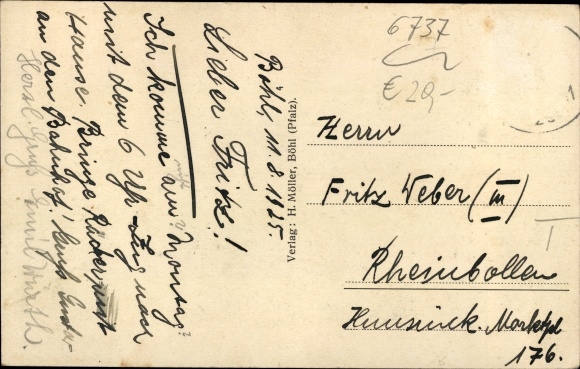 Böhl, 11.8.1925.
Lieber Fritz!
Ich komme am Montag?
mit dem 6 Uhr Zug nach
Hause. Bringe
an den Bahnhof!
Herzl. Gruß Wirth.
Verlag: H. Möller, Böhl (Pfalz).
6737
€ 20,-
Herrn
Fritz Weber (III)
Rheinbollen
Hunsrück. Marktpl
176.